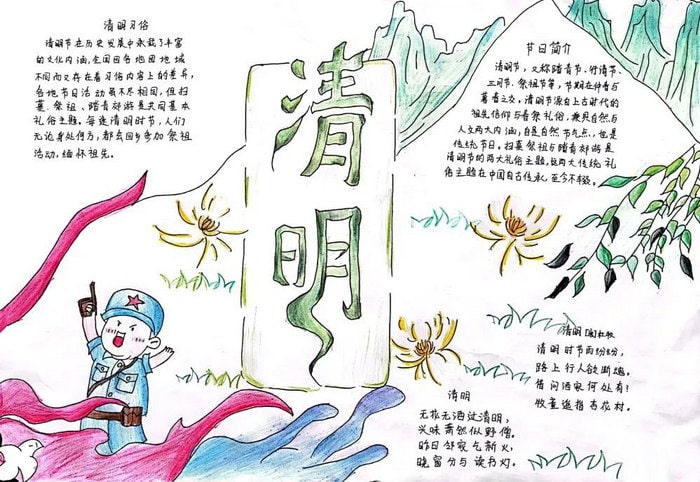 清明习俗
清明节在历史发展中承载了丰富
的文化内涵,全国因各地因地域
不同而又存在着习俗内容上的差异,
各地节日活动虽不尽相同,但扫
墓、祭祖、踏青郊游是共同基本
礼俗主题。每逢清明时节,人们
无论身处何方,都会回乡参加祭祖
活动,缅怀祖先。
清明
节日简介
清明节,又称踏青节、行清节、
三月节、祭祖节等,节期在仲春与
暮春之交。清明节源自上古时代的
祖先信仰与春祭礼俗,兼具自然与
人文两大内涵,自是自然节气点,也是
传统节日。扫墓祭祖与踏青郊游是
清明节的两大礼俗主题,这两大传统礼
俗主题在中国自古传承,至今不辍。
清明
无花无酒过清明,
兴味萧然似野僧。
昨日邻家乞新火,
晓窗分与读书灯。
清明 [唐]杜牧
清明时节雨纷纷,
路上行人欲断魂。
借问酒家何处有?
牧童遥指杏花村。